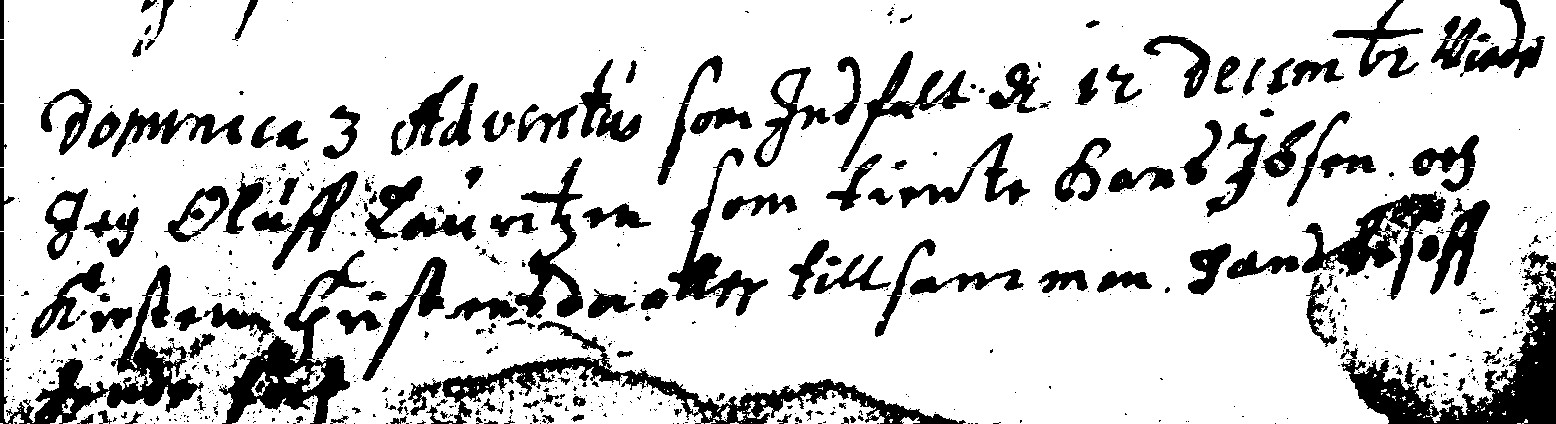 Dominica 3 Adventus som Indfalt d. 12 Decembr Viede
Jeg Oluff Lauritzen som tiente Hans Ibsen och
Kirsten Christensdaatter tillsammen. Hand besoff
hende først